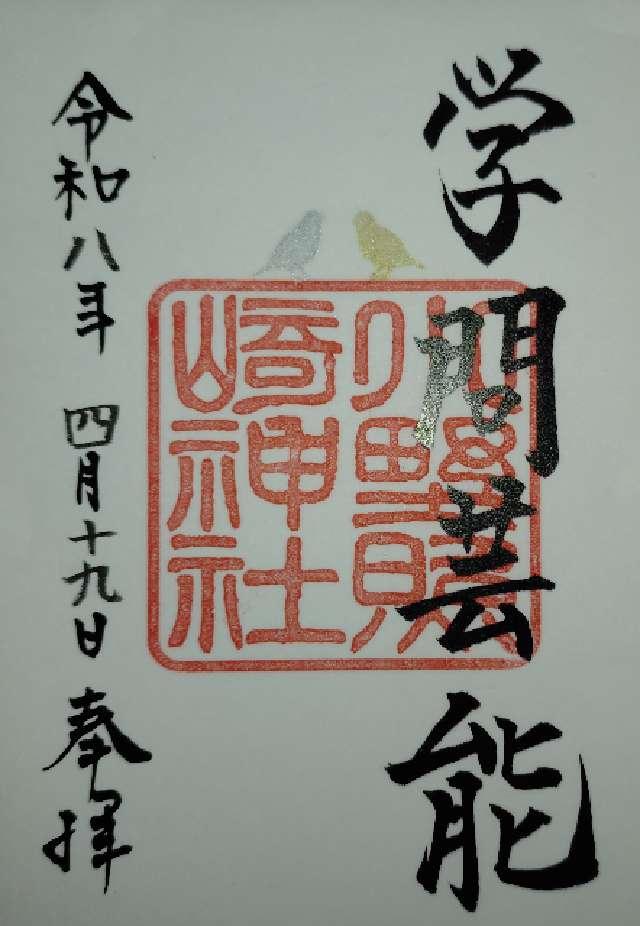 学問芸能
小野照
崎神社
令和八年 四月十九日 奉拝